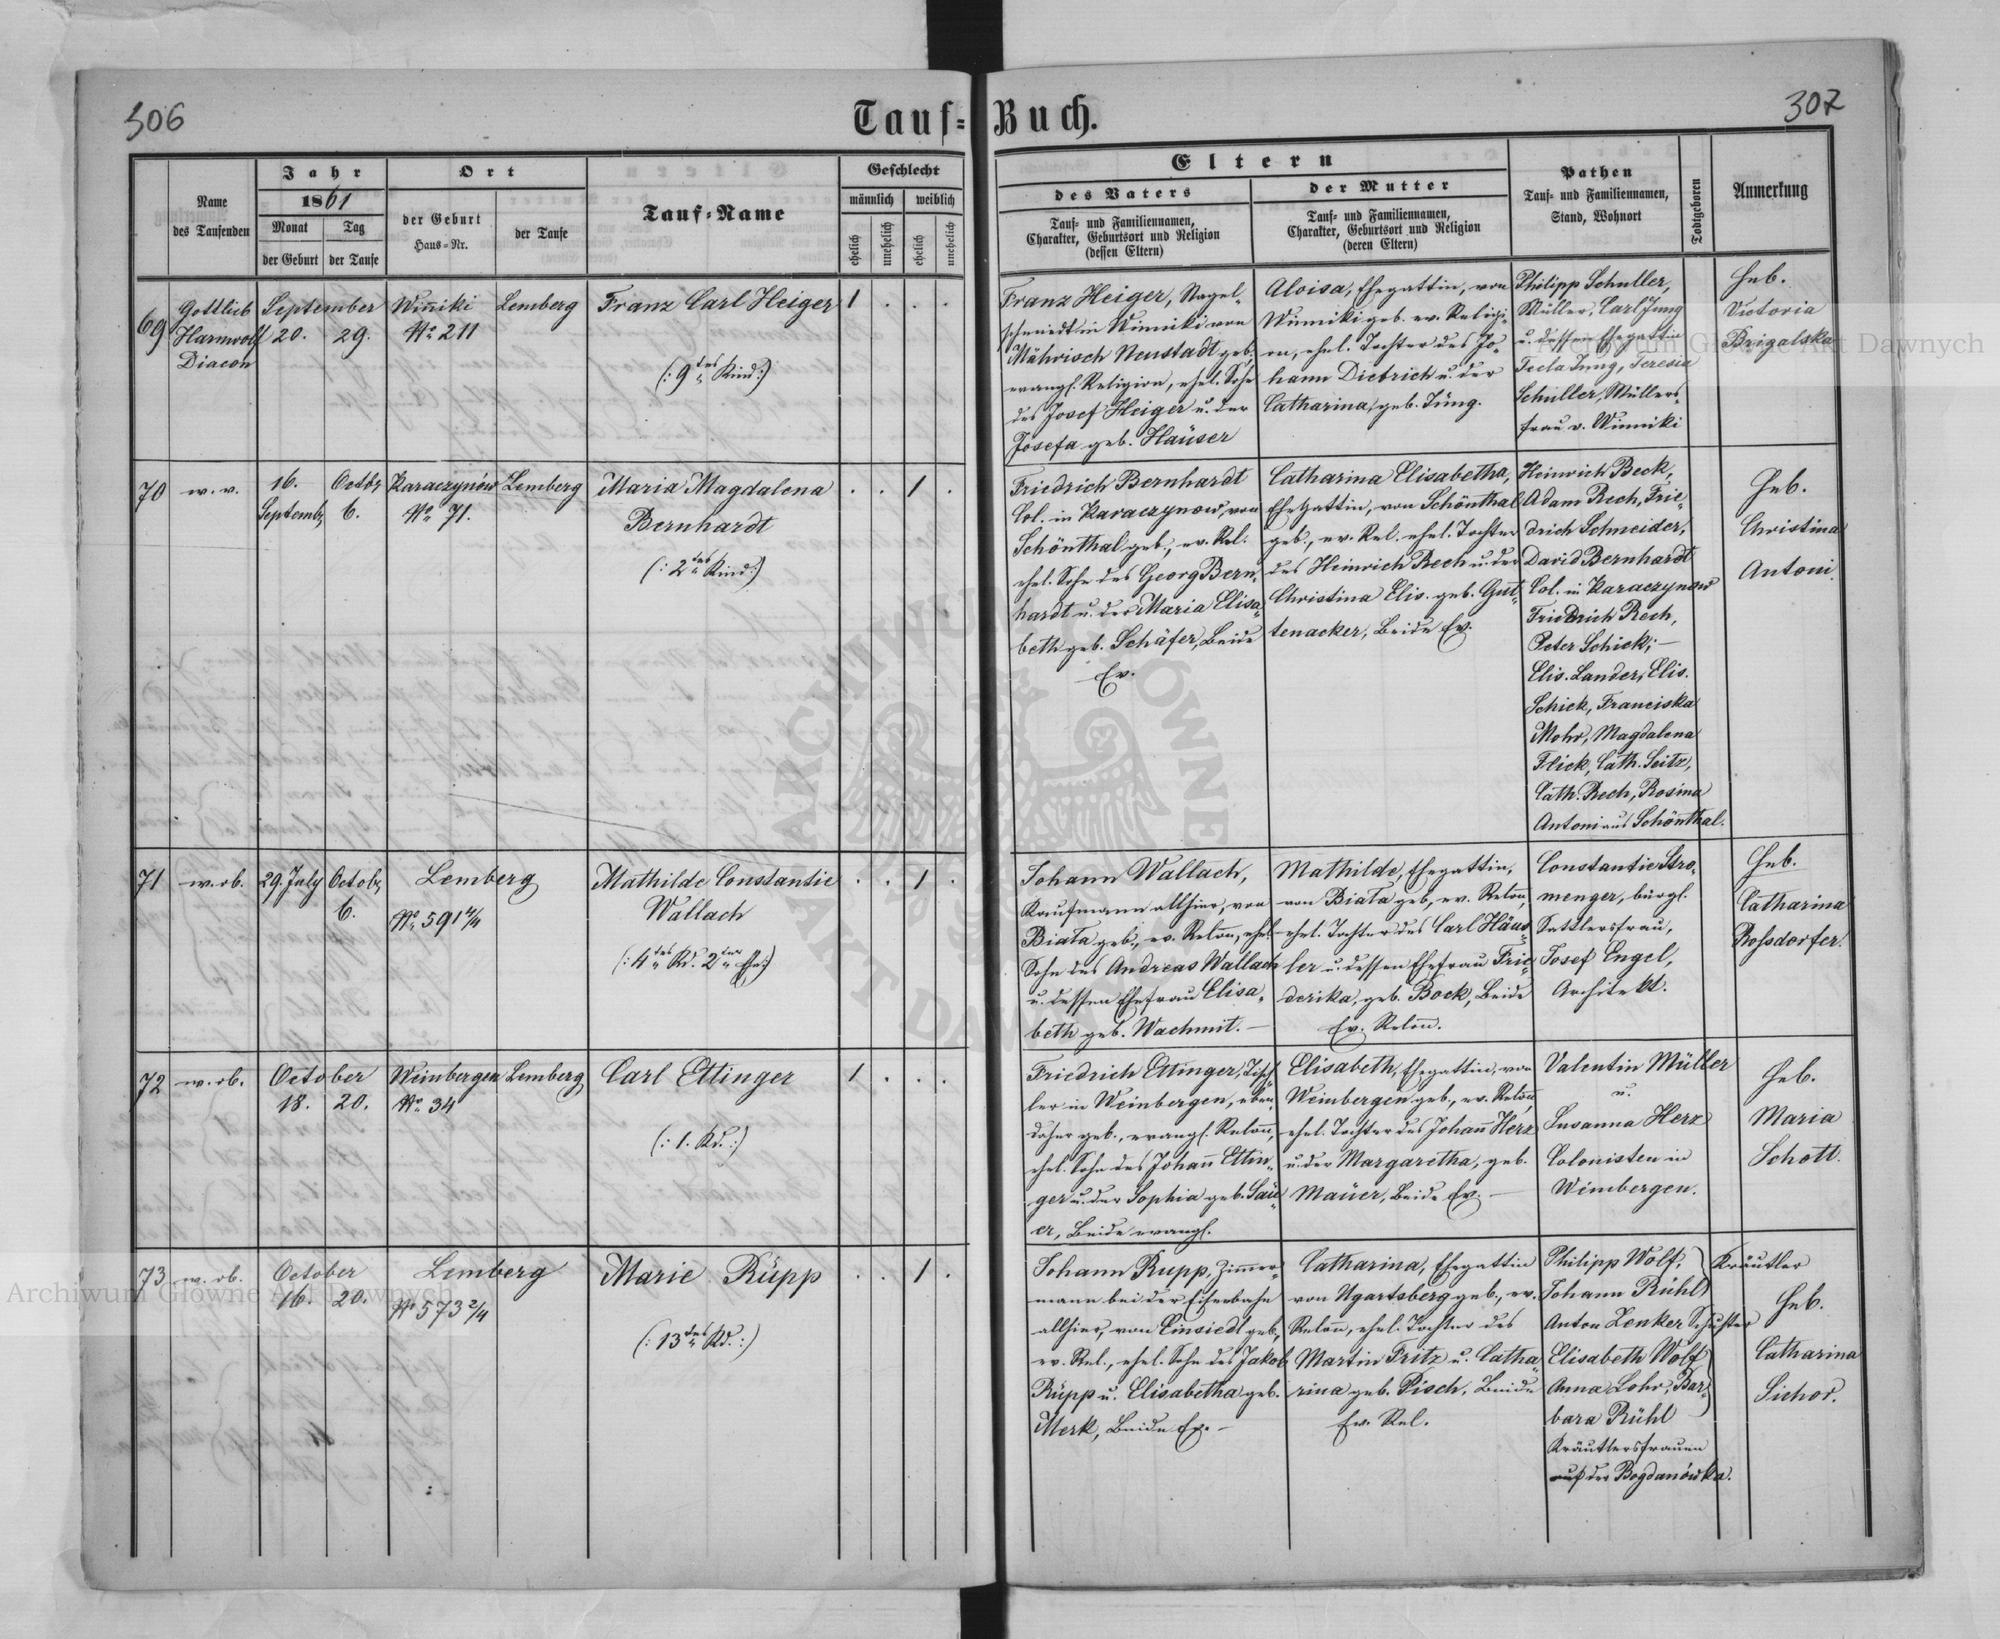 306
Tauf-Buch.
307
Name des Taufenden
Jahr
1861
Monat
Tag
der Geburt
der Taufe
Ort
der Geburt
Haus-Nr.
der Taufe
Tauf-Name
Geschlecht
männlich
weiblich
ehelich
unehelich
ehelich
unehelich
Eltern
des Vaters
Tauf- und Familiennamen,
Charakter, Geburtsort und Religion
(dessen Eltern)
der Mutter
Tauf- und Familiennamen,
Charakter, Geburtsort und Religion
(deren Eltern)
Pathen
Tauf- und Familiennamen,
Stand, Wohnort
Todtgeboren
Anmerkung
69
Gottlieb
Harmwolf
Diacon
September
20. 29.
Winniki
No 211
Lemberg
Franz Carl Heiger
(: 9tes Kind :)
1 . . .
Franz Heiger, Nagel-
schmiedt in Winniki von
Mährisch Neustadt geb.,
evangl. Religion, ehel. Sohn
des Josef Heiger u. der
Josefa geb. Haüser
Aloisa, Ehegattin, von
Winniki geb. ev. Religi-
on, ehel. Tochter des Jo-
hann Diebrich u. der
Catharina, geb. Jüng.
Philipp Schuller,
Müller, Carl Jung
u. dessen Ehegattin
Tecla Jung, Teresia
Schüller, Müllers-
frau v. Winniki
Heb.
Victoria
Brigalska
70
w. v.
16.
Septemb.
Octobr
6.
Karaczynów
No 71.
Lemberg
Maria Magdalena
Bernhardt
(: 2tes Kind :)
. . 1 .
Friedrich Bernhardt
Col. in Karaczynow, von
Schönthal geb., ev. Rel.
ehel. Sohn des Georg Bern-
hardt u. der Maria Elisa-
beth geb. Schäfer, Beide
Ev.
Catharina Elisabetha,
Ehegattin, von Schönthal
geb., ev. Rel. ehel. Tochter
des Heinrich Rech u. der
Christina Elis. geb. Gut-
tenacker, Beide Ev.
Heinrich Beck,
Adam Rech, Frie-
drich Schneider,
David Bernhardt
Col. in Karaczynow
Friedrich Rech,
Peter Schick; —
Elis. Lander, Elis.
Schick, Franciska
Mohr, Magdalena
Flick, Cath. Seitz,
Cath. Rech, Rosina
Antoni aus Schönthal.
Heb.
Christina
Antoni.
71
w. ob.
29. July
Octob.
6.
Lemberg
No 591 4/4
Mathilde Constantie
Wallach
(: 4tes Kd. 2ter Ehe :)
. . 1 .
Johann Wallach,
Kaufmann allhier, von
Biała geb., ev. Relon, ehel.
Sohn des Andreas Wallach
u. dessen Ehefrau Elisa-
beth geb. Wachmit. —
Mathilde, Ehegattin,
von Biała geb., ev. Relon,
ehel. Tochter des Carl Häus-
ler u. dessen Ehefrau Frie-
derika, geb. Bock, Beide
Ev. Relon.
Constantie Stro-
menger, bürgl.
Sattlersfrau,
Josef Engel,
Architekt.
Heb.
Catharina
Rossdorfer.
72
w. ob.
October
18. 20.
Weinbergen
No 34
Lemberg
Carl Ettinger
(: 1. Kd. :)
1 . . .
Friedrich Ettinger, Tisch-
ler in Weinbergen, eben-
daher geb., evangl. Relon,
ehel. Sohn des Johann Ettin-
ger u. der Sophia geb. Saü-
er, Beide evangl.
Elisabeth, Ehegattin, von
Weinbergen geb., ev. Relon,
ehel. Tochter des Johann Herz
u. der Margaretha, geb.
Maüer, Beide Ev. —
Valentin Müller
u.
Susanna Herz
Colonisten in
Weinbergen.
Heb.
Maria
Schott.
73
w. ob.
October
16. 20.
Lemberg
No 573 2/4
Marie Rüpp
(: 13tes Kd. :)
. . 1 .
Johann Rupp, Zimmer-
mann bei der Eisenbahn
allhier, von Einsiedl geb.,
ev. Rel., ehel. Sohn des Jakob
Rüpp u. Elisabetha geb.
Merk, Beide Ev. —
Catharina, Ehegattin
von Ugartsberg geb., ev.
Relon, ehel. Tochter des
Martin Fritz u. Catha-
rina geb. Pisch, Beide
Ev. Rel.
Philipp Wolf,
Johann Rühl
Kräutler
Anton Zenker Schuster
Elisabeth Wolf
Anna Lohr, Bar-
bara Rühl
Kräutlersfrauen
auf der Bogdanówka.
Heb.
Catharina
Sichor.
Archiwum Główne Akt Dawnych
Archiwum Główne Akt Dawnych
ARCHIWUM GŁÓWNE AKT DAWNYCH